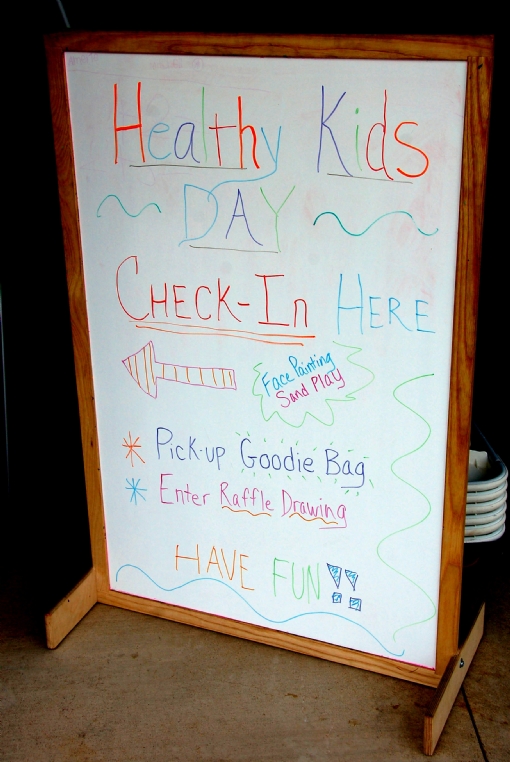 Healthy Kids
DAY
CHECK-In HERE
Face Painting
Sand PLAY
* Pick-up Goodie Bag
* Enter Raffle Drawing
HAVE FUN!!